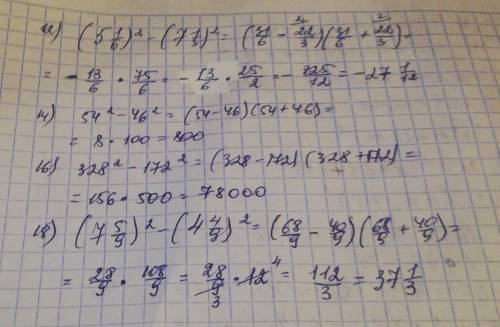 12) (5 1/6)² - (7 1/3)² = (31/6 - 22/3)(31/6 + 22/3) =
= - 13/6 · 75/6 = - 13/6 · 25/2 = - 325/12 = -27 1/12
14) 54² - 46² = (54 - 46)(54 + 46) =
= 8 · 100 = 800
16) 328² - 172² = (328 - 172)(328 + 172) =
= 156 · 500 = 78000
18) (7 5/9)² - (4 4/9)² = (68/9 - 40/9)(68/9 + 40/9) =
= 28/9 · 108/9 = 28/9 3 · 12 4 = 112/3 = 37 1/3